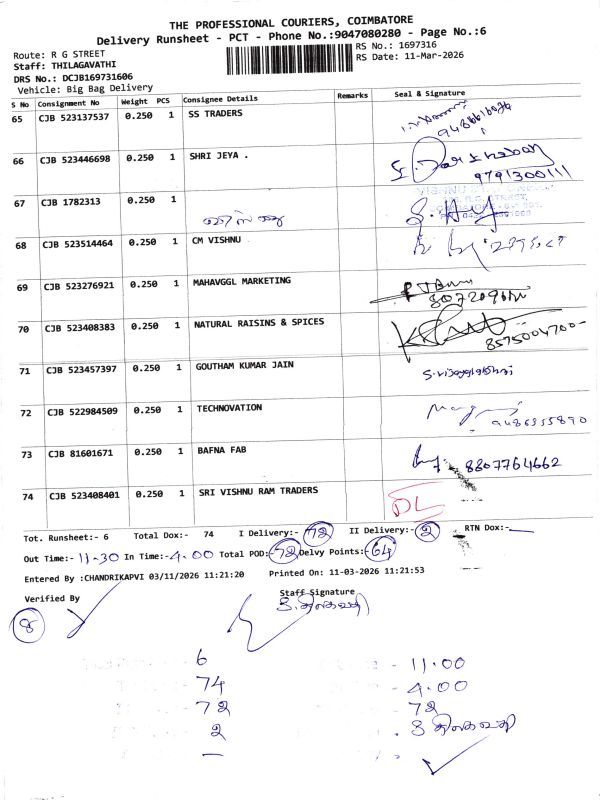 THE PROFESSIONAL COURIERS, COIMBATORE
Delivery Runsheet - PCT - Phone No.:9047080280 - Page No.:6
Route: R G STREET
RS No.: 1697316
Staff: THILAGAVATHI
RS Date: 11-Mar-2026
DRS No.: DCJB169731606
Vehicle: Big Bag Delivery
S No Consignment No Weight PCS Consignee Details Remarks Seal & Signature
65 CJB 523137537 0.250 1 SS TRADERS
9486616036
66 CJB 523446698 0.250 1 SHRI JEYA .
9791300111
67 CJB 1782313 0.250 1
68 CJB 523514464 0.250 1 CM VISHNU
69 CJB 523276921 0.250 1 MAHAVGGL MARKETING
70 CJB 523408383 0.250 1 NATURAL RAISINS & SPICES
8575004700-
71 CJB 523457397 0.250 1 GOUTHAM KUMAR JAIN
72 CJB 522984509 0.250 1 TECHNOVATION
9486355890
73 CJB 81601671 0.250 1 BAFNA FAB 8807764662
74 CJB 523408401 0.250 1 SRI VISHNU RAM TRADERS DL
Tot. Runsheet:- 6 Total Dox:- 74 I Delivery:- 72 II Delivery:- 2 RTN Dox:-
Out Time:- 11-30 In Time:- 4.00 Total POD:- 72 Delvy Points:- 64
Entered By :CHANDRIKAPVI 03/11/2026 11:21:20 Printed On: 11-03-2026 11:21:53
Verified By Staff Signature
8 திலகவதி
6 - 11.00
74 - 4.00
72 - 72
2 திலகவதி